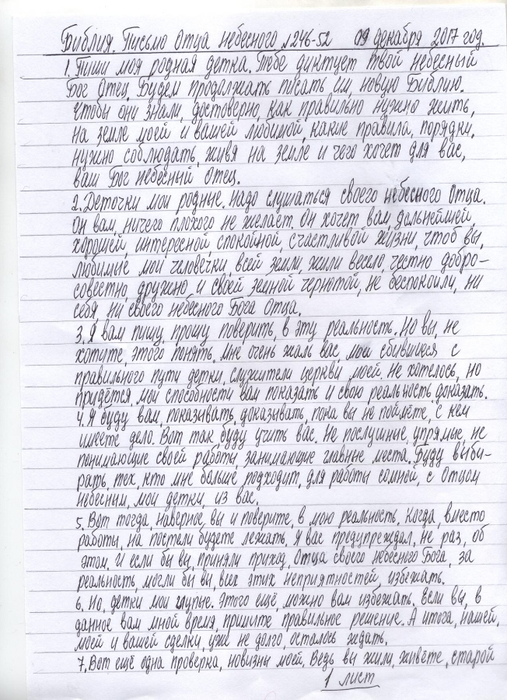 Библия. Письмо Отца небесного №246-52 09 декабря 2017 год.
1. Пиши моя родная детка. Тебе диктует твой небесный
Бог Отец. Будем продолжать писать им, новую Библию.
Чтобы они знали, достоверно, как правильно нужно жить,
на земле моей и вашей любимой, какие правила, порядки,
нужно соблюдать, живя на земле и чего хочет для вас,
ваш Бог небесный Отец.
2. Деточки мои родные, надо слушаться своего небесного Отца.
Он вам, ничего плохого не желает. Он хочет вам, дальнейшей,
хорошей, интересной, спокойной, счастливой жизни, чтоб вы,
любимые мои человечки всей земли, жили весело, честно добро-
совестно, дружно, и своей земной чернотой, не беспокоили, ни
себя, ни своего небесного Бога Отца.
3. Я вам пишу, прошу поверить, в эту реальность. Но вы, не
хотите, этого понять. Мне очень жаль вас, мои сбившиеся с
правильного пути детки, служители церкви моей. Не хотелось, но
придётся, мои способности вам показать и свою реальность доказать.
4. Я буду вам, показывать, доказывать, пока вы не поймёте, с кем
имеете дело. Вот так буду учить вас. Не послушные, упрямые, не
понимающие своей работы, занимающие главные места. Буду выби-
рать, тех, кто мне больше подходит, для работы со мной, с Отцом
небесным, мои детки, из вас.
5. Вот тогда, наверное, вы и поверите, в мою реальность, когда, вместо
работы, на постели будете лежать. Я вас предупреждал, не раз, об
этом. И если бы вы, приняли приход, Отца своего небесного Бога, за
реальность, могли бы вы, всех этих неприятностей, избежать.
6. Но, детки мои глупые. Этого ещё, можно вам избежать. Если вы, в
данное вам мной время, примите правильное решение. А итога, нашей,
моей и вашей сделки, уже не долго, осталось ждать.
7. Вот ещё одна проверка, новизны моей. Ведь вы жили, живёте, старой
1 лист